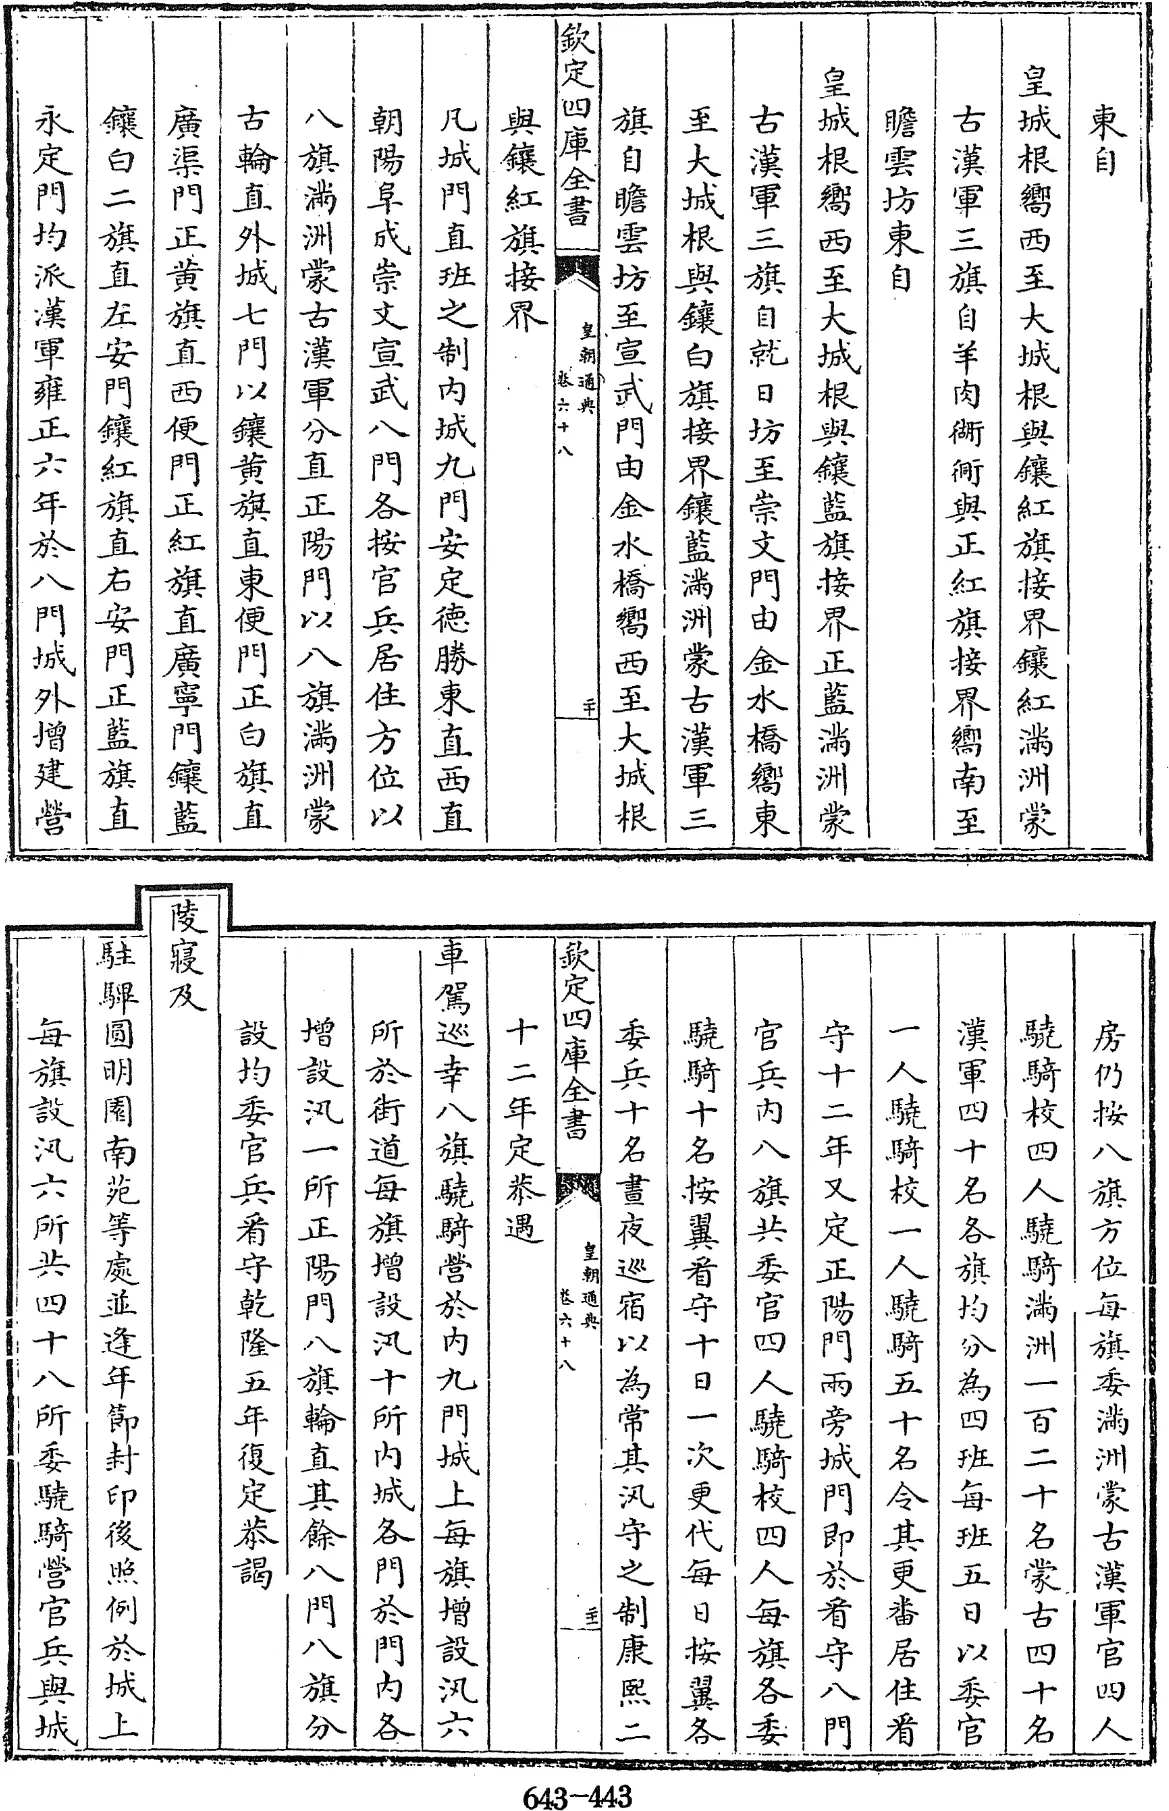 東自
皇城根嚮西至大城根與鑲紅旗接界鑲紅滿洲蒙
古漢軍三旗自羊肉衚衕與正紅旗接界嚮南至
瞻雲坊東自
皇城根嚮西至大城根與鑲藍旗接界正藍滿洲蒙
古漢軍三旗自就日坊至崇文門由金水橋嚮東
至大城根與鑲白旗接界鑲藍滿洲蒙古漢軍三
旗自瞻雲坊至宣武門由金水橋嚮西至大城根
欽定四庫全書
皇朝通典
卷六十八
二十
與鑲紅旗接界
凡城門直班之制內城九門安定德勝東直西直
朝陽阜成崇文宣武八門各按官兵居住方位以
八旗滿洲蒙古漢軍分直正陽門以八旗滿洲蒙
古輪直外城七門以鑲黃旗直東便門正白旗直
廣渠門正黃旗直西便門正紅旗直廣寧門鑲藍
鑲白二旗直左安門鑲紅旗直右安門正藍旗直
永定門均派漢軍雍正六年於八門城外增建營
房仍按八旗方位每旗委滿洲蒙古漢軍官四人
驍騎校四人驍騎滿洲一百二十名蒙古四十名
漢軍四十名各旗均分為四班每班五日以委官
一人驍騎校一人驍騎五十名令其更番居住看
守十二年又定正陽門兩旁城門即於看守八門
官兵內八旗共委官四人驍騎校四人每旗各委
驍騎十名按翼看守十日一次更代每日按翼各
委兵十名晝夜巡宿以為常其汛守之制康熙二
欽定四庫全書
皇朝通典
卷六十八
二十一
十二年定恭遇
車駕巡幸八旗驍騎營於內九門城上每旗增設汛六
所於街道每旗增設汛十所內城各門於門內各
增設汛一所正陽門八旗輪直其餘八門八旗分
設均委官兵看守乾隆五年復定恭謁
陵寢及
駐蹕圓明園南苑等處並逢年節封印後照例於城上
每旗設汛六所共四十八所委驍騎營官兵與城
643-443